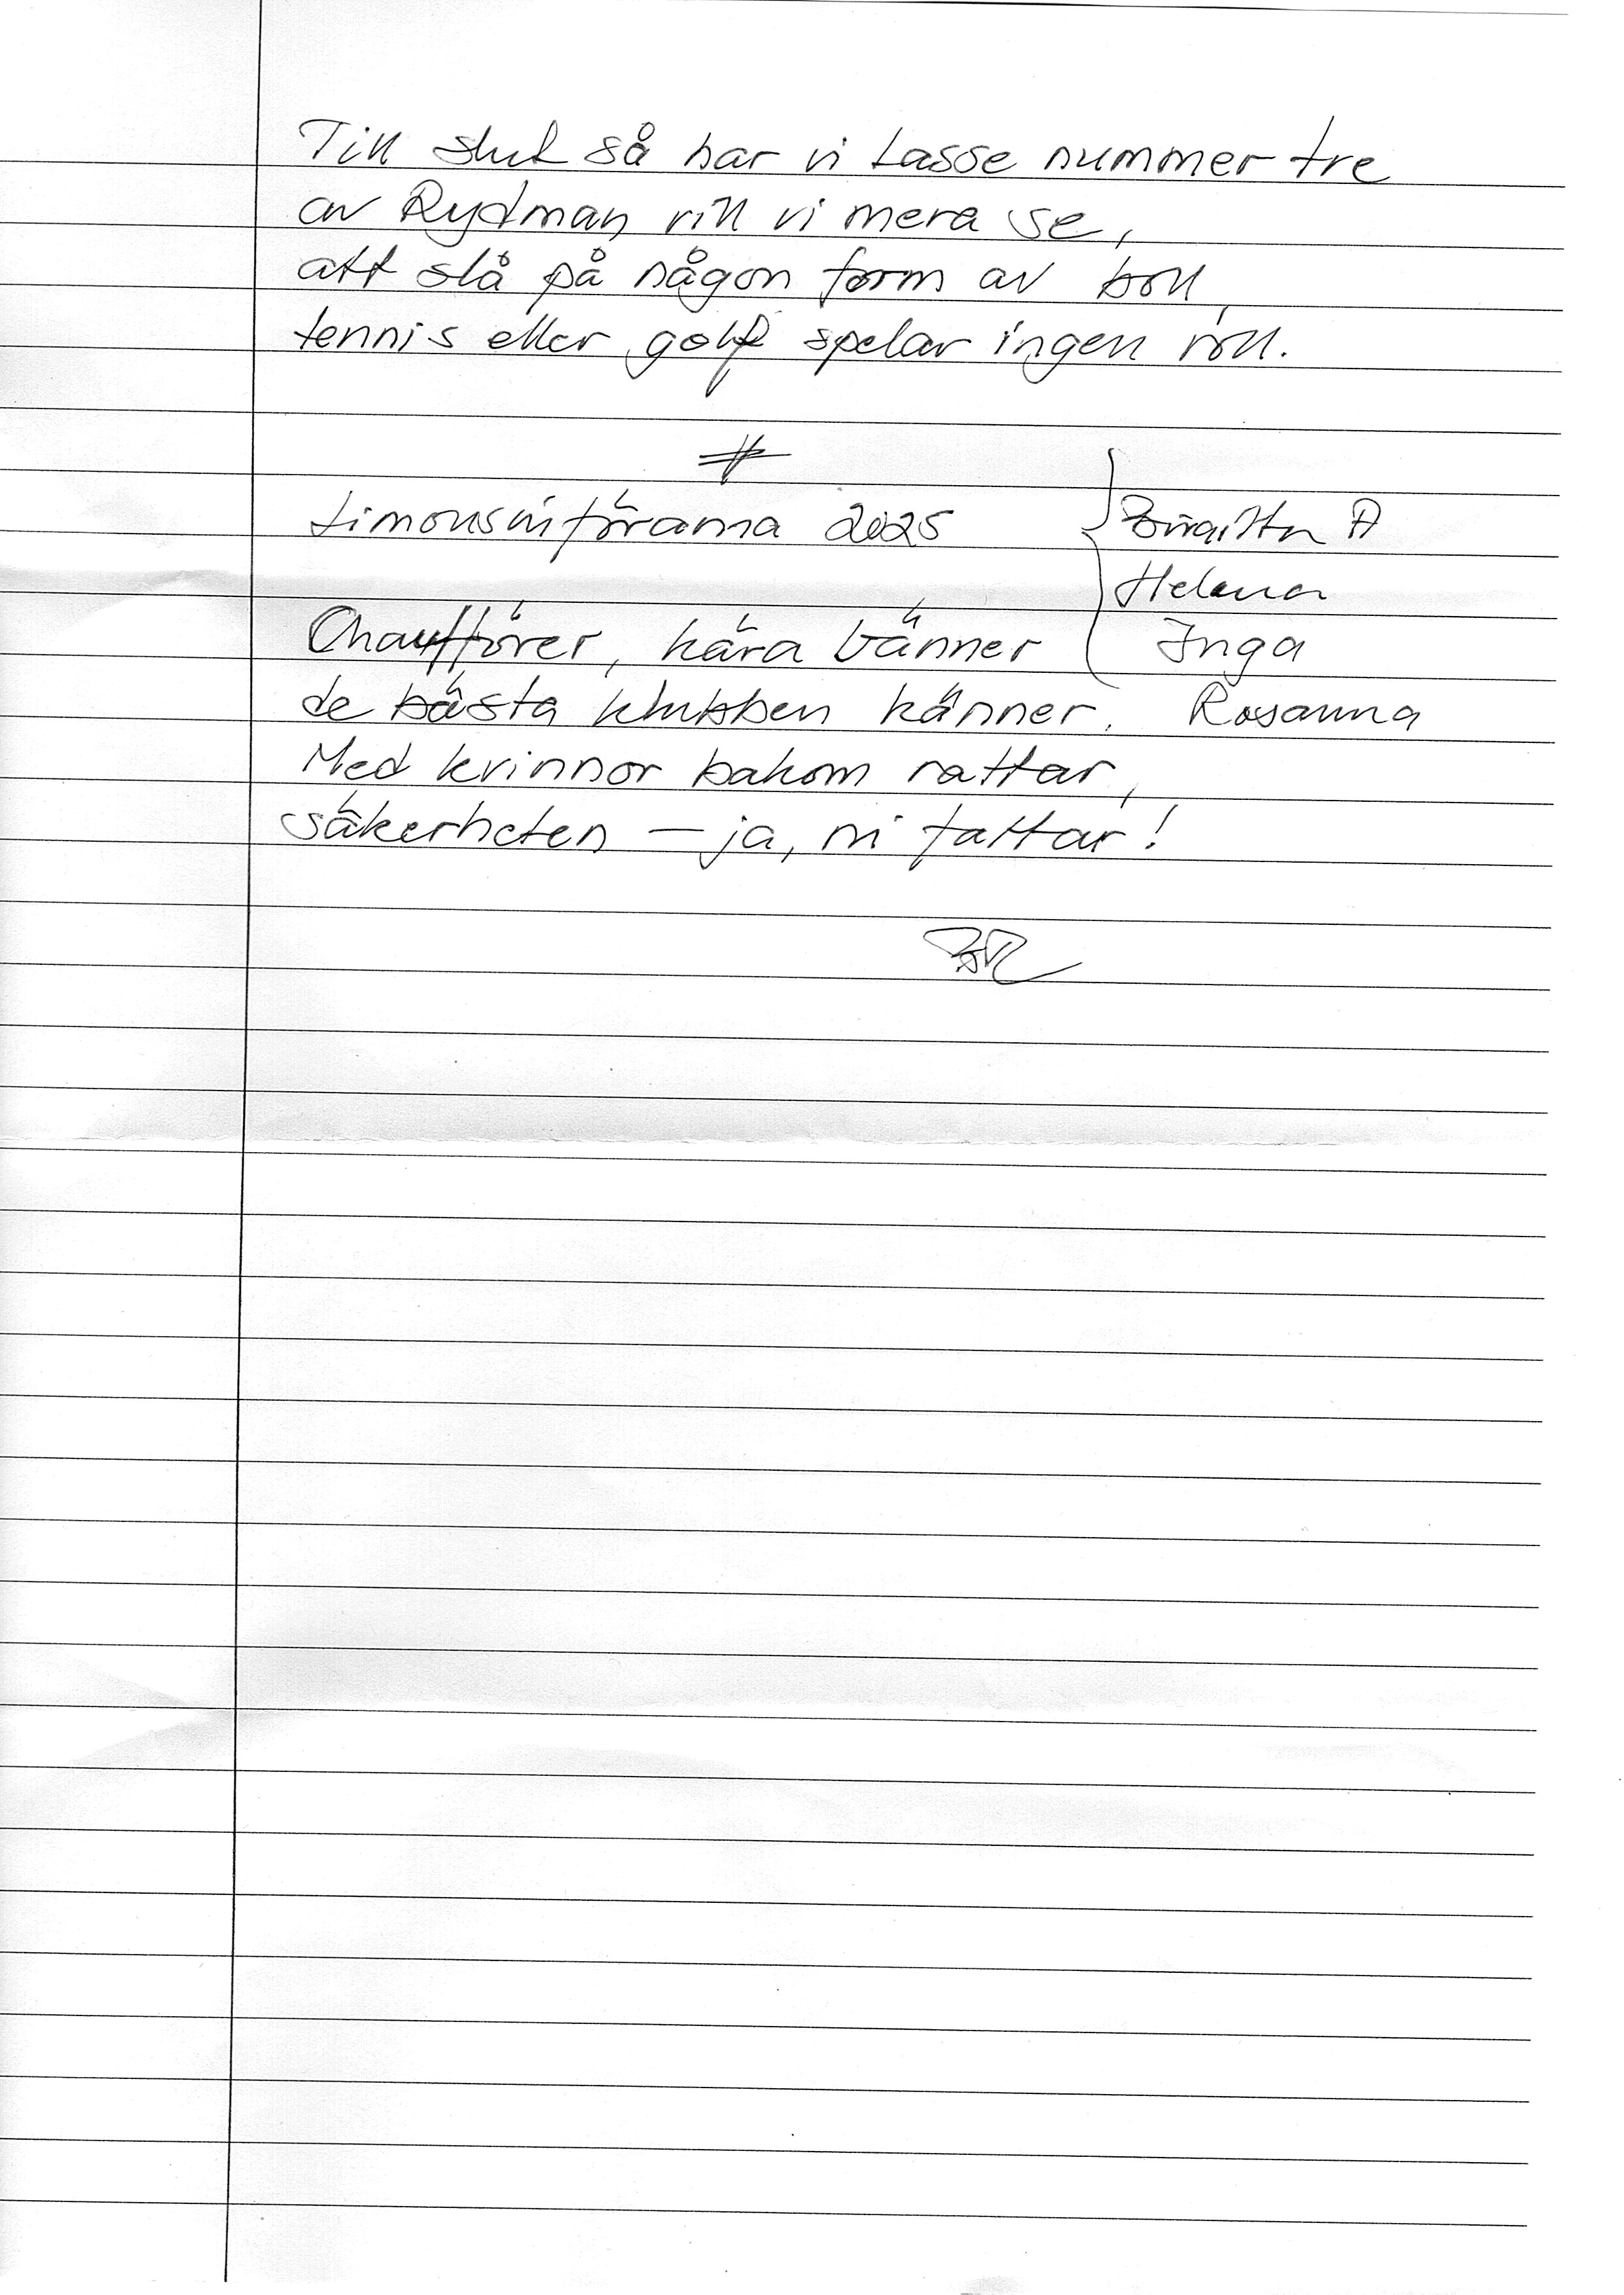 Till slut så har vi Lasse nummer tre
av Rydman vill vi mera se,
att slå på någon form av boll,
tennis eller golf spelar ingen roll.
#
Limousinförarna 2025
Birgitta A
Helena
Inga
Rosanna
Chaufförer, kära vänner
de bästa klubben känner.
Med kvinnor bakom rattar,
säkerheten – ja, ni fattar!
BR